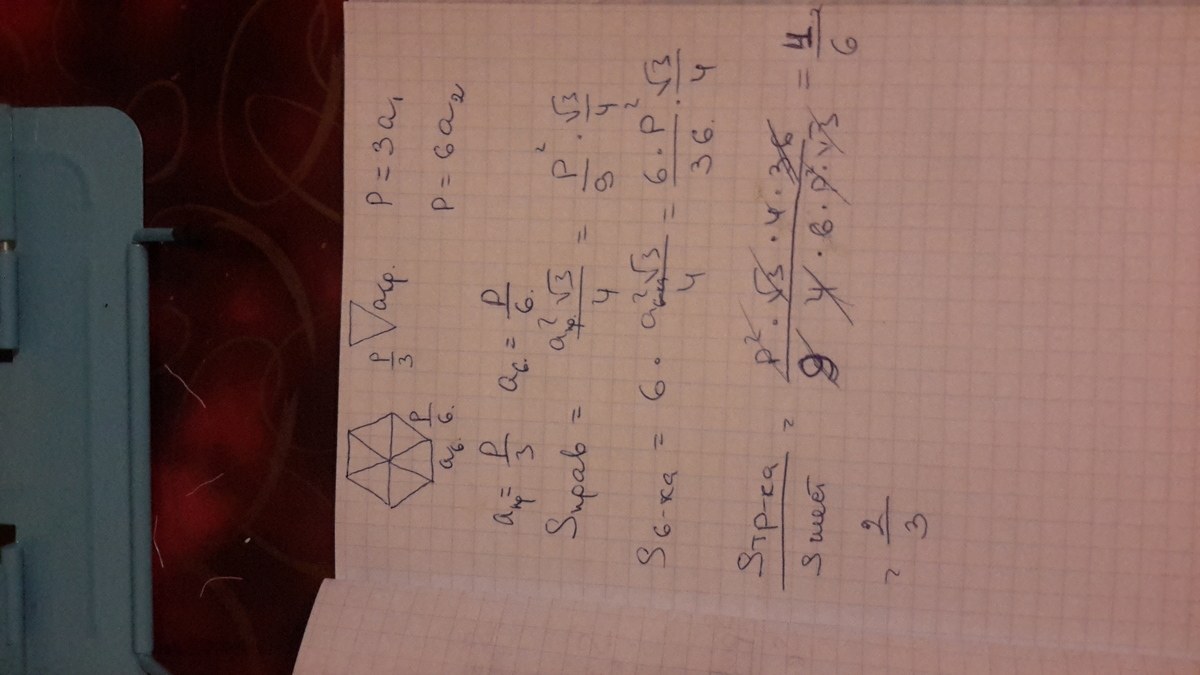 P/3 a тр. P = 3a₁
a₆. P/6. P = 6a₂
a пр = P/3 a₆. = P/6.
S прав = a²пр √3 / 4 = P²/9 · √3/4
S 6-ка = 6 · a² √3 / 4 = 6 · P² / 36. · √3/4
S тр-ка / S шест = P² · √3 · 4 · 36 / 9 · 4 · 6 · P² · √3 = 4 / 6
= 2/3